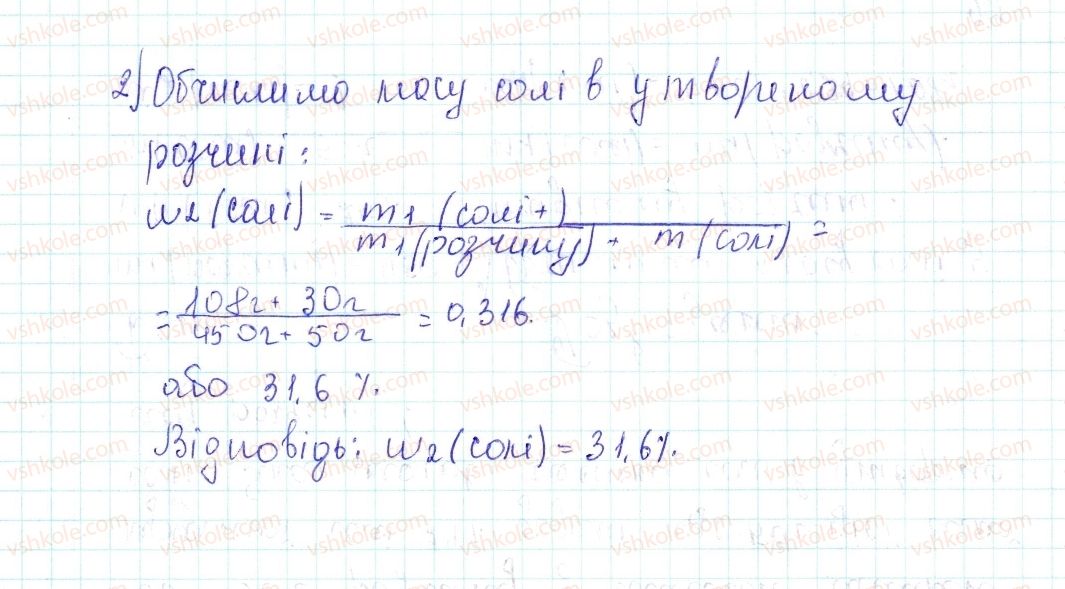 2) Обчислимо масу солі в утвореному
розчині:
w2 (солі) = m1 (солі +) / m1 (розчину) + m (солі) =
= 108г + 30г / 450г + 50г = 0,316.
або 31,6 %.
Відповідь: w2 (солі) = 31,6%.